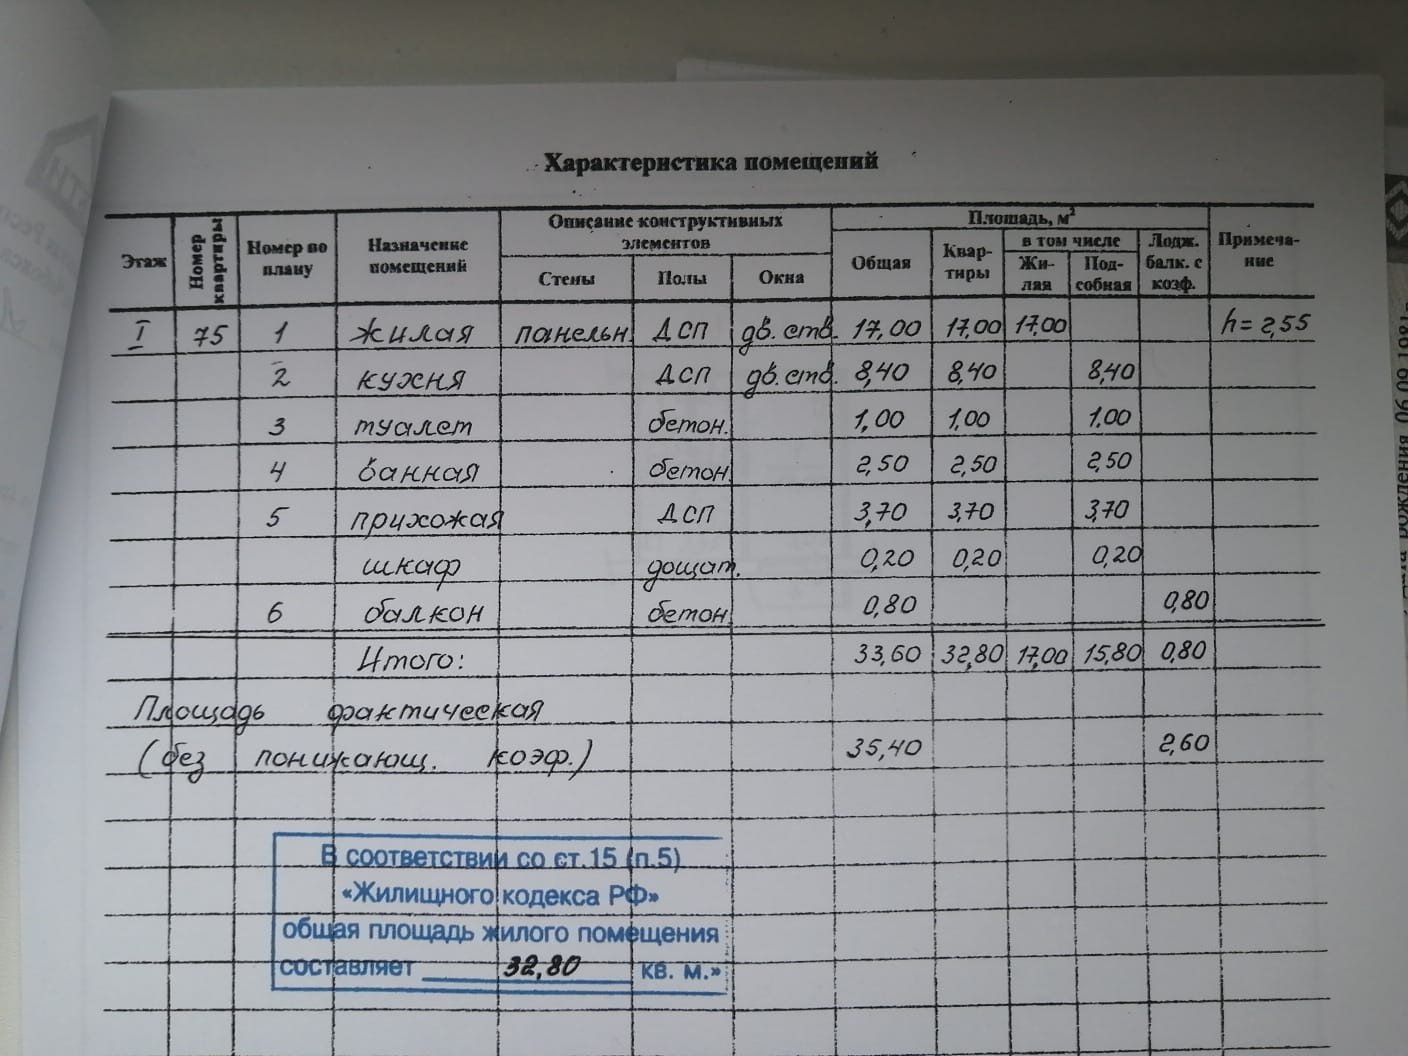 Характеристика помещений
Этаж
Номер квартиры
Номер по плану
Назначение помещений
Описание конструктивных элементов
Стены
Полы
Окна
Площадь, м²
Общая
Квар-
тиры
в том числе
Жи-
лая
Под-
собная
Лодж.
балк. с
коэф.
Примеча-
ние
I 75 1 жилая панельн. ДСП дв. ств. 17,00 17,00 17,00 h=2,55
2 кухня ДСП дв. ств. 8,40 8,40 8,40
3 туалет бетон. 1,00 1,00 1,00
4 ванная бетон. 2,50 2,50 2,50
5 прихожая ДСП 3,70 3,70 3,70
шкаф дощат. 0,20 0,20 0,20
6 балкон бетон. 0,80 0,80
Итого: 33,60 32,80 17,00 15,80 0,80
Площадь фактическая
(без понижающ. коэф.) 35,40 2,60
В соответствии со ст.15 (п.5)
«Жилищного кодекса РФ»
общая площадь жилого помещения
составляет 32,80 кв. м.»
рождения 06.09.1981